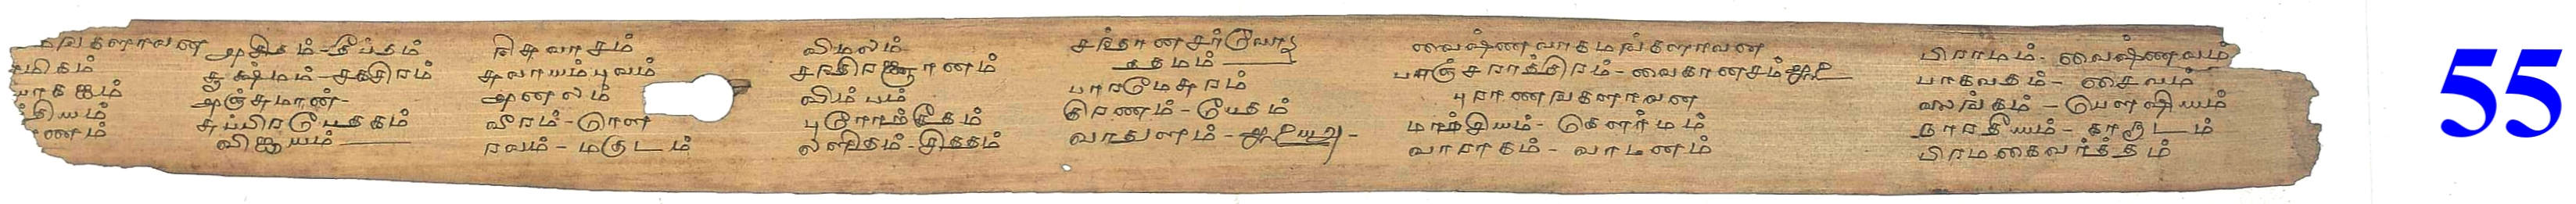 மங்களாவன
மிகம்
யாகஜம்
தியம்
ணம்
அசிதம் - தீப்தம்
சூக்ஷ்மம் - சகசிரம்
அஞ்சுமான் -
சுப்பிரபேதகம்
விஜயம்
நிசுவாசம்
சுவாயம்புவம்
அனலம்
வீரம் - ரௌ
ரவம் - மகுடம்
விமலம்
சந்திரஞானம்
விம்பம்
புரோற்கீதம்
லளிதம் - சித்தம்
சந்தான சர்வோ
த்தமம்
பாரமேசுரம்
கிரணம் - பேதம்
வாதுளம் -
வைஷ்ணவாகமங்களாவன
பாஞ்சராத்திரம் - வைகானசம்
புராணங்களாவன
மாற்சியம் - கௌர்மம்
வாராகம் - வாமனம்
பிராமம் - வைஷ்ணவம்
பாகவதம் - சைவம்
லைங்கம் - பௌஷியம்
நாரதீயம் - காருடம்
பிரமகைவர்த்தம்
55